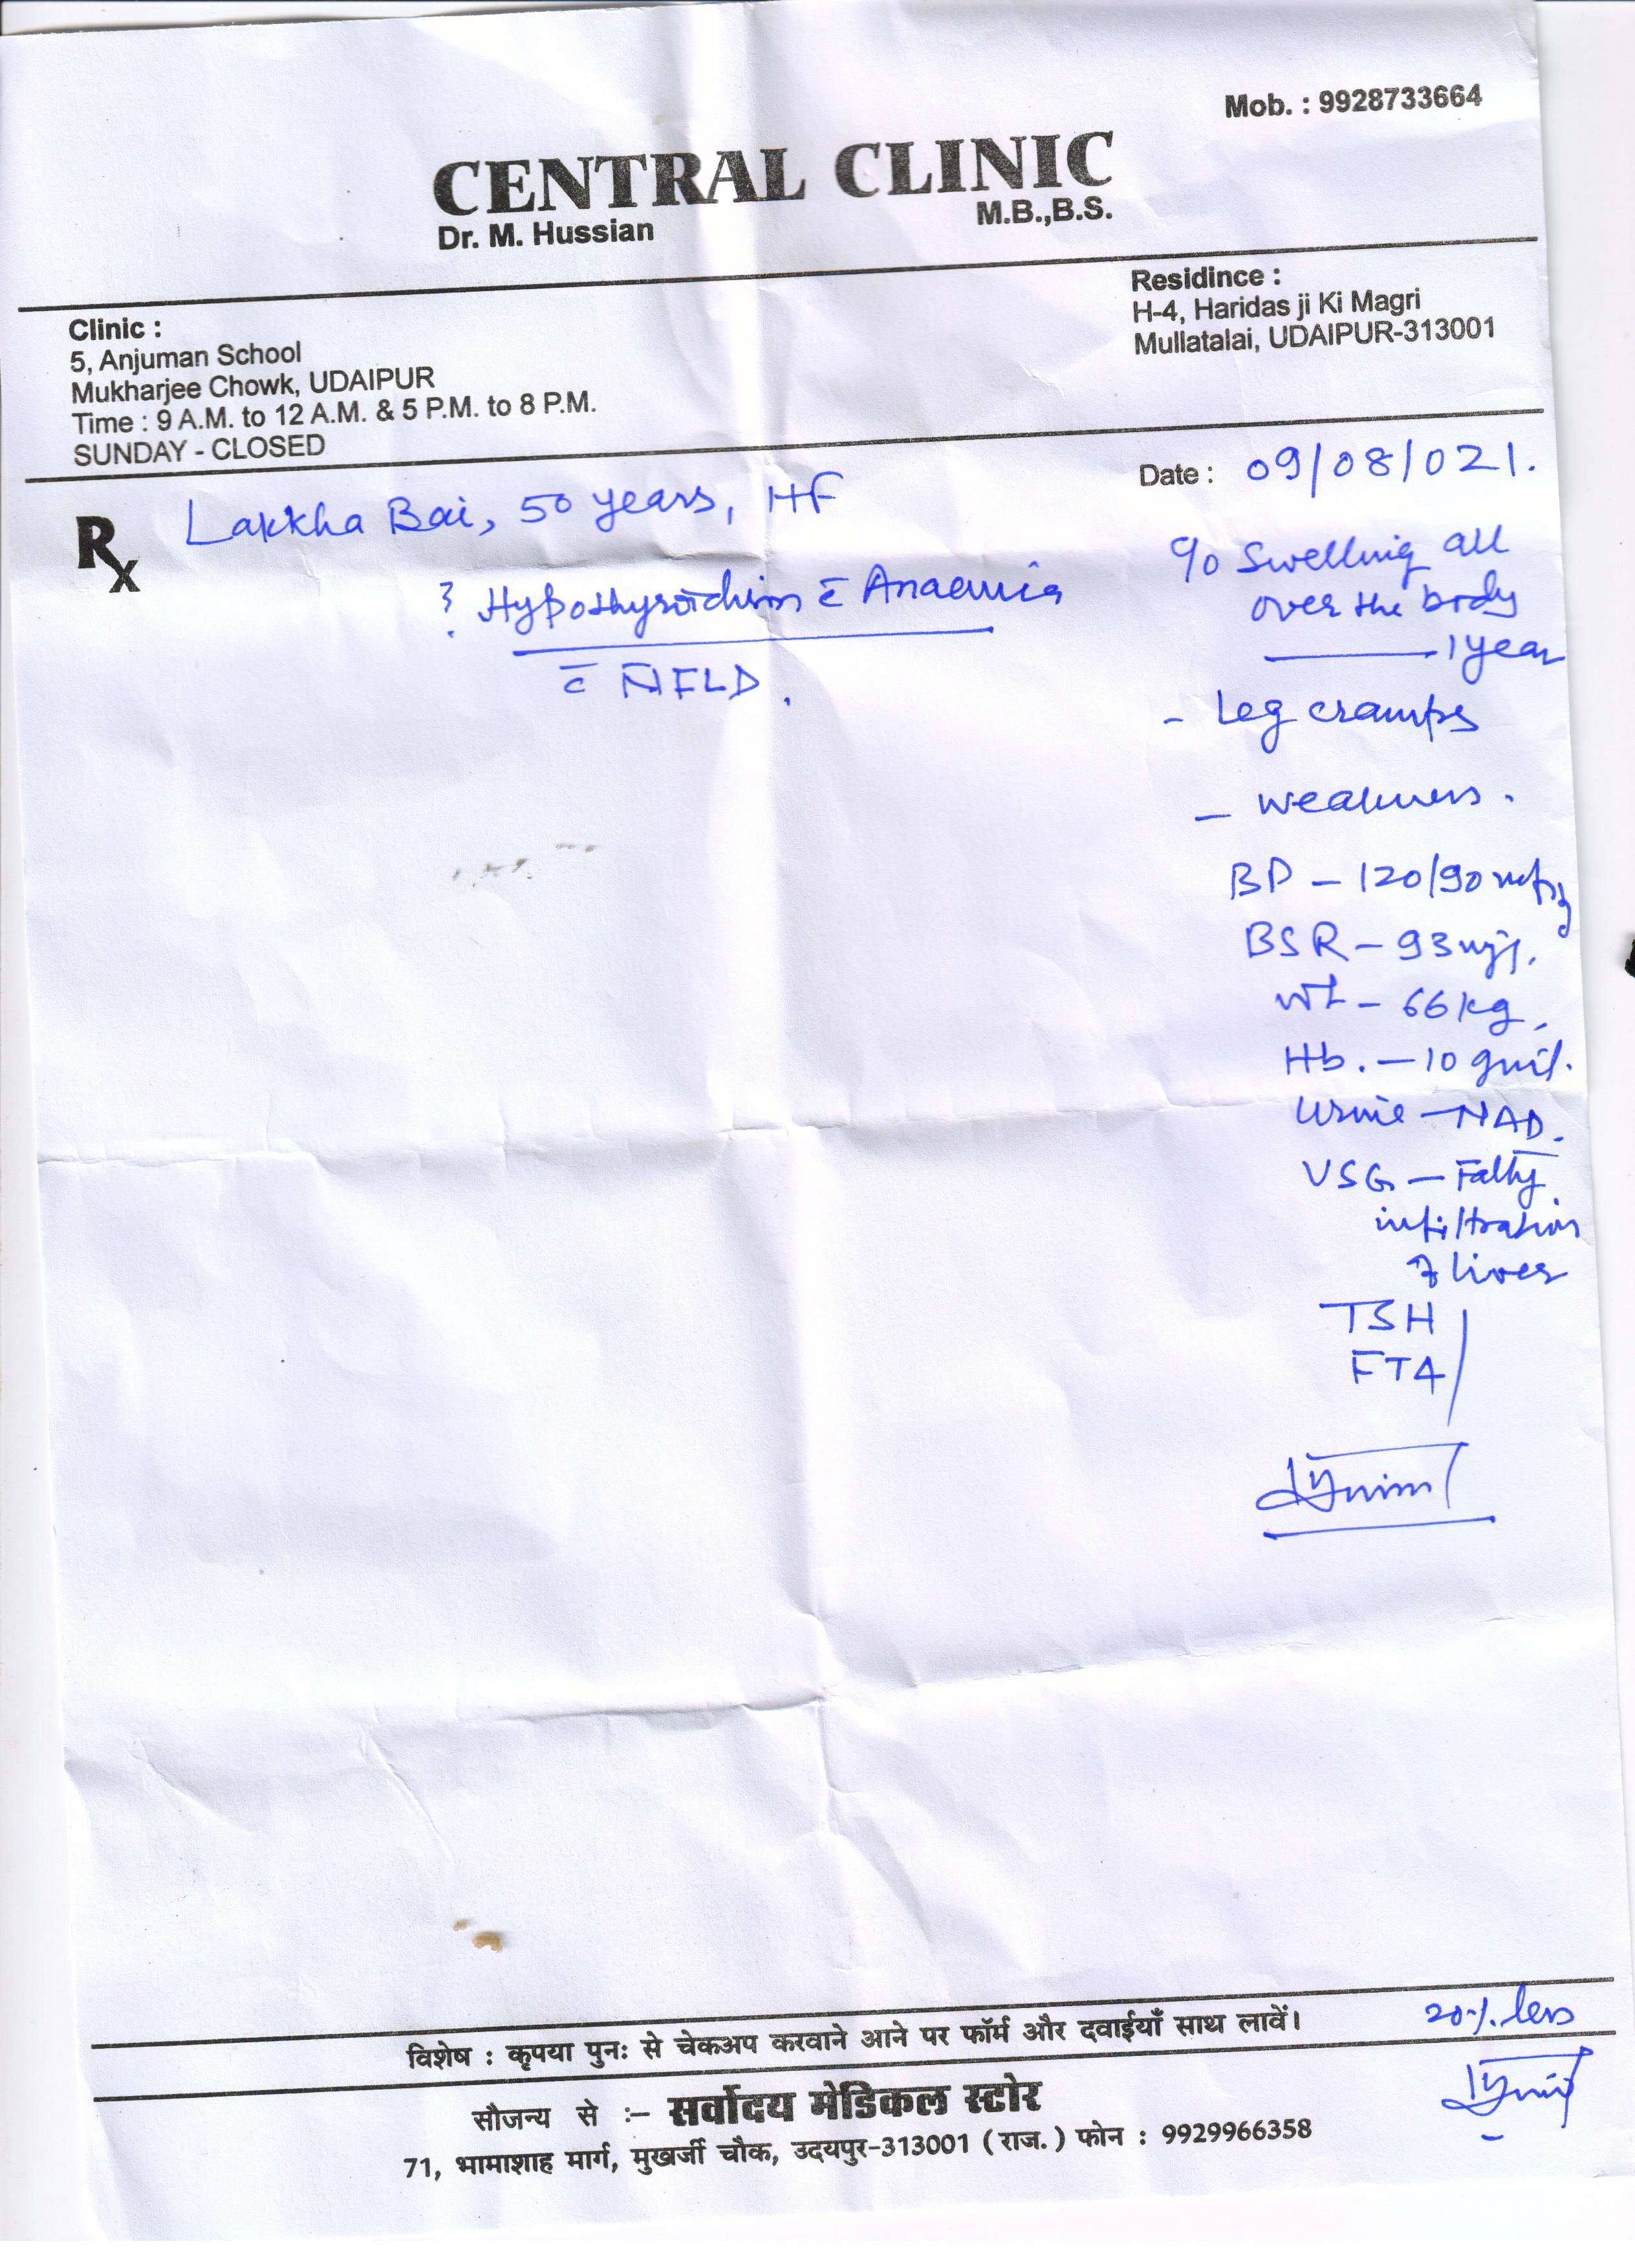 Mob. : 9928733664
CENTRAL CLINIC
Dr. M. Hussian
M.B.,B.S.
Clinic :
5, Anjuman School
Mukharjee Chowk, UDAIPUR
Time : 9 A.M. to 12 A.M. & 5 P.M. to 8 P.M.
SUNDAY - CLOSED
Residince :
H-4, Haridas ji Ki Magri
Mullatalai, UDAIPUR-313001
Date : 09/08/021.
Rx Lakkha Bai, 50 years, HF
? Hypothyroidism c̄ Anaemia
c̄ NFLD.
c/o Swelling all
over the body
1 year
- Leg cramps
- weakness.
BP - 120/90 mmHg
BSR - 93 mg%.
wt - 66 kg
Hb. - 10 gm%.
Urine - NAD.
USG - Fatty
infiltration
of liver
TSH
FT4
20% less
विशेष : कृपया पुनः से चेकअप करवाने आने पर फॉर्म और दवाईयाँ साथ लावें।
सौजन्य से :- सर्वोदय मेडिकल स्टोर
71, भामाशाह मार्ग, मुखर्जी चौक, उदयपुर-313001 (राज.) फोन : 9929966358